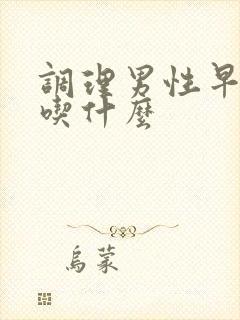 調理男性早
喫什麼
烏蒙